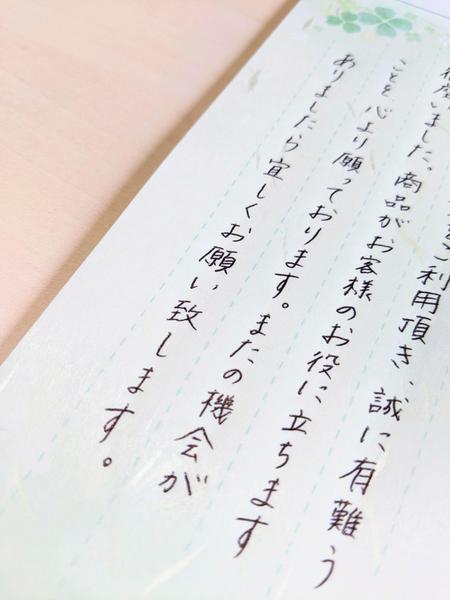 をご利用頂き、誠に有難う
座いました。商品がお客様のお役に立ちます
ことを心より願っております。またの機会が
ありましたら宜しくお願い致します。